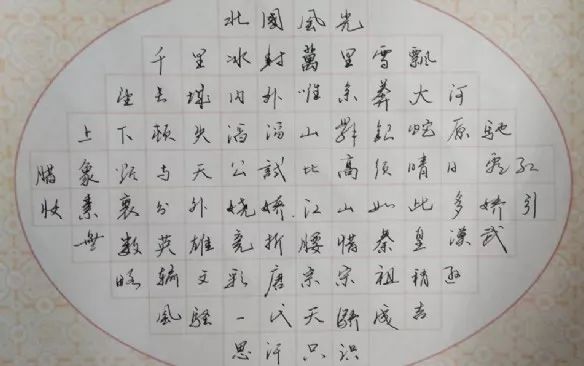 北國風光
千里冰封萬里雪飄
望长城内外惟余莽大河
上下顿失滔滔山舞銀蛇原馳
腊象欲与天公試比高须晴日看红
妆素裹分外娆娇江山如此多娇引
無数英雄竞折腰惜秦皇漢武
略输文彩唐宗宋祖稍逊
風騷一代天骄成吉
思汗只识